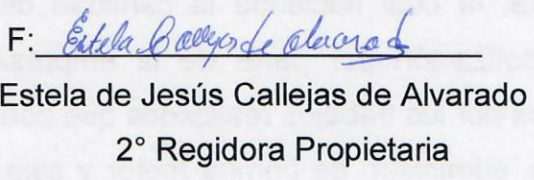 F: Estela Callejas de Alvarado
Estela de Jesús Callejas de Alvarado
2° Regidora Propietaria